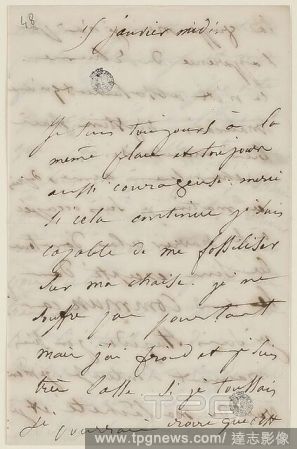 48
15 janvier midi
Je suis toujours à la
même place et toujours
aussi courageuse. merci
si cela continue je suis
capable de me fossiliser
sur ma chaise. je ne
souffre pas pourtant
mais j'ai froid et je suis
très lasse si je toussais
je pourrais croire que
www.tpgnews.com/達志影像